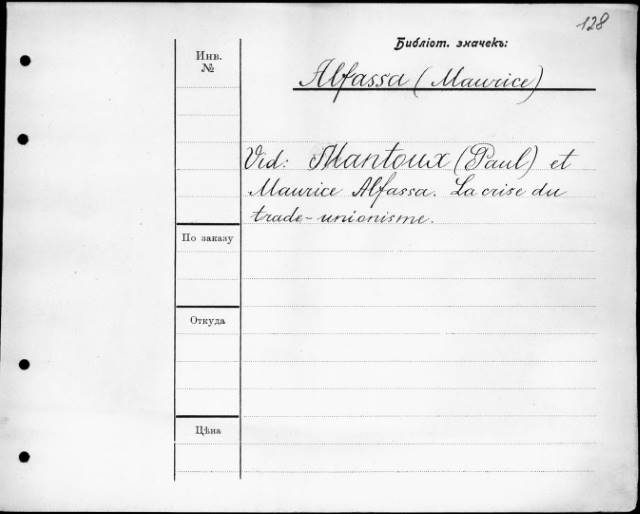 128
Библіот. значекъ:
Инв.
№
Alfassa (Maurice)
Vid: Mantoux (Paul) et
Maurice Alfassa. La crise du
trade-unionisme.
По заказу
Откуда
Цѣна